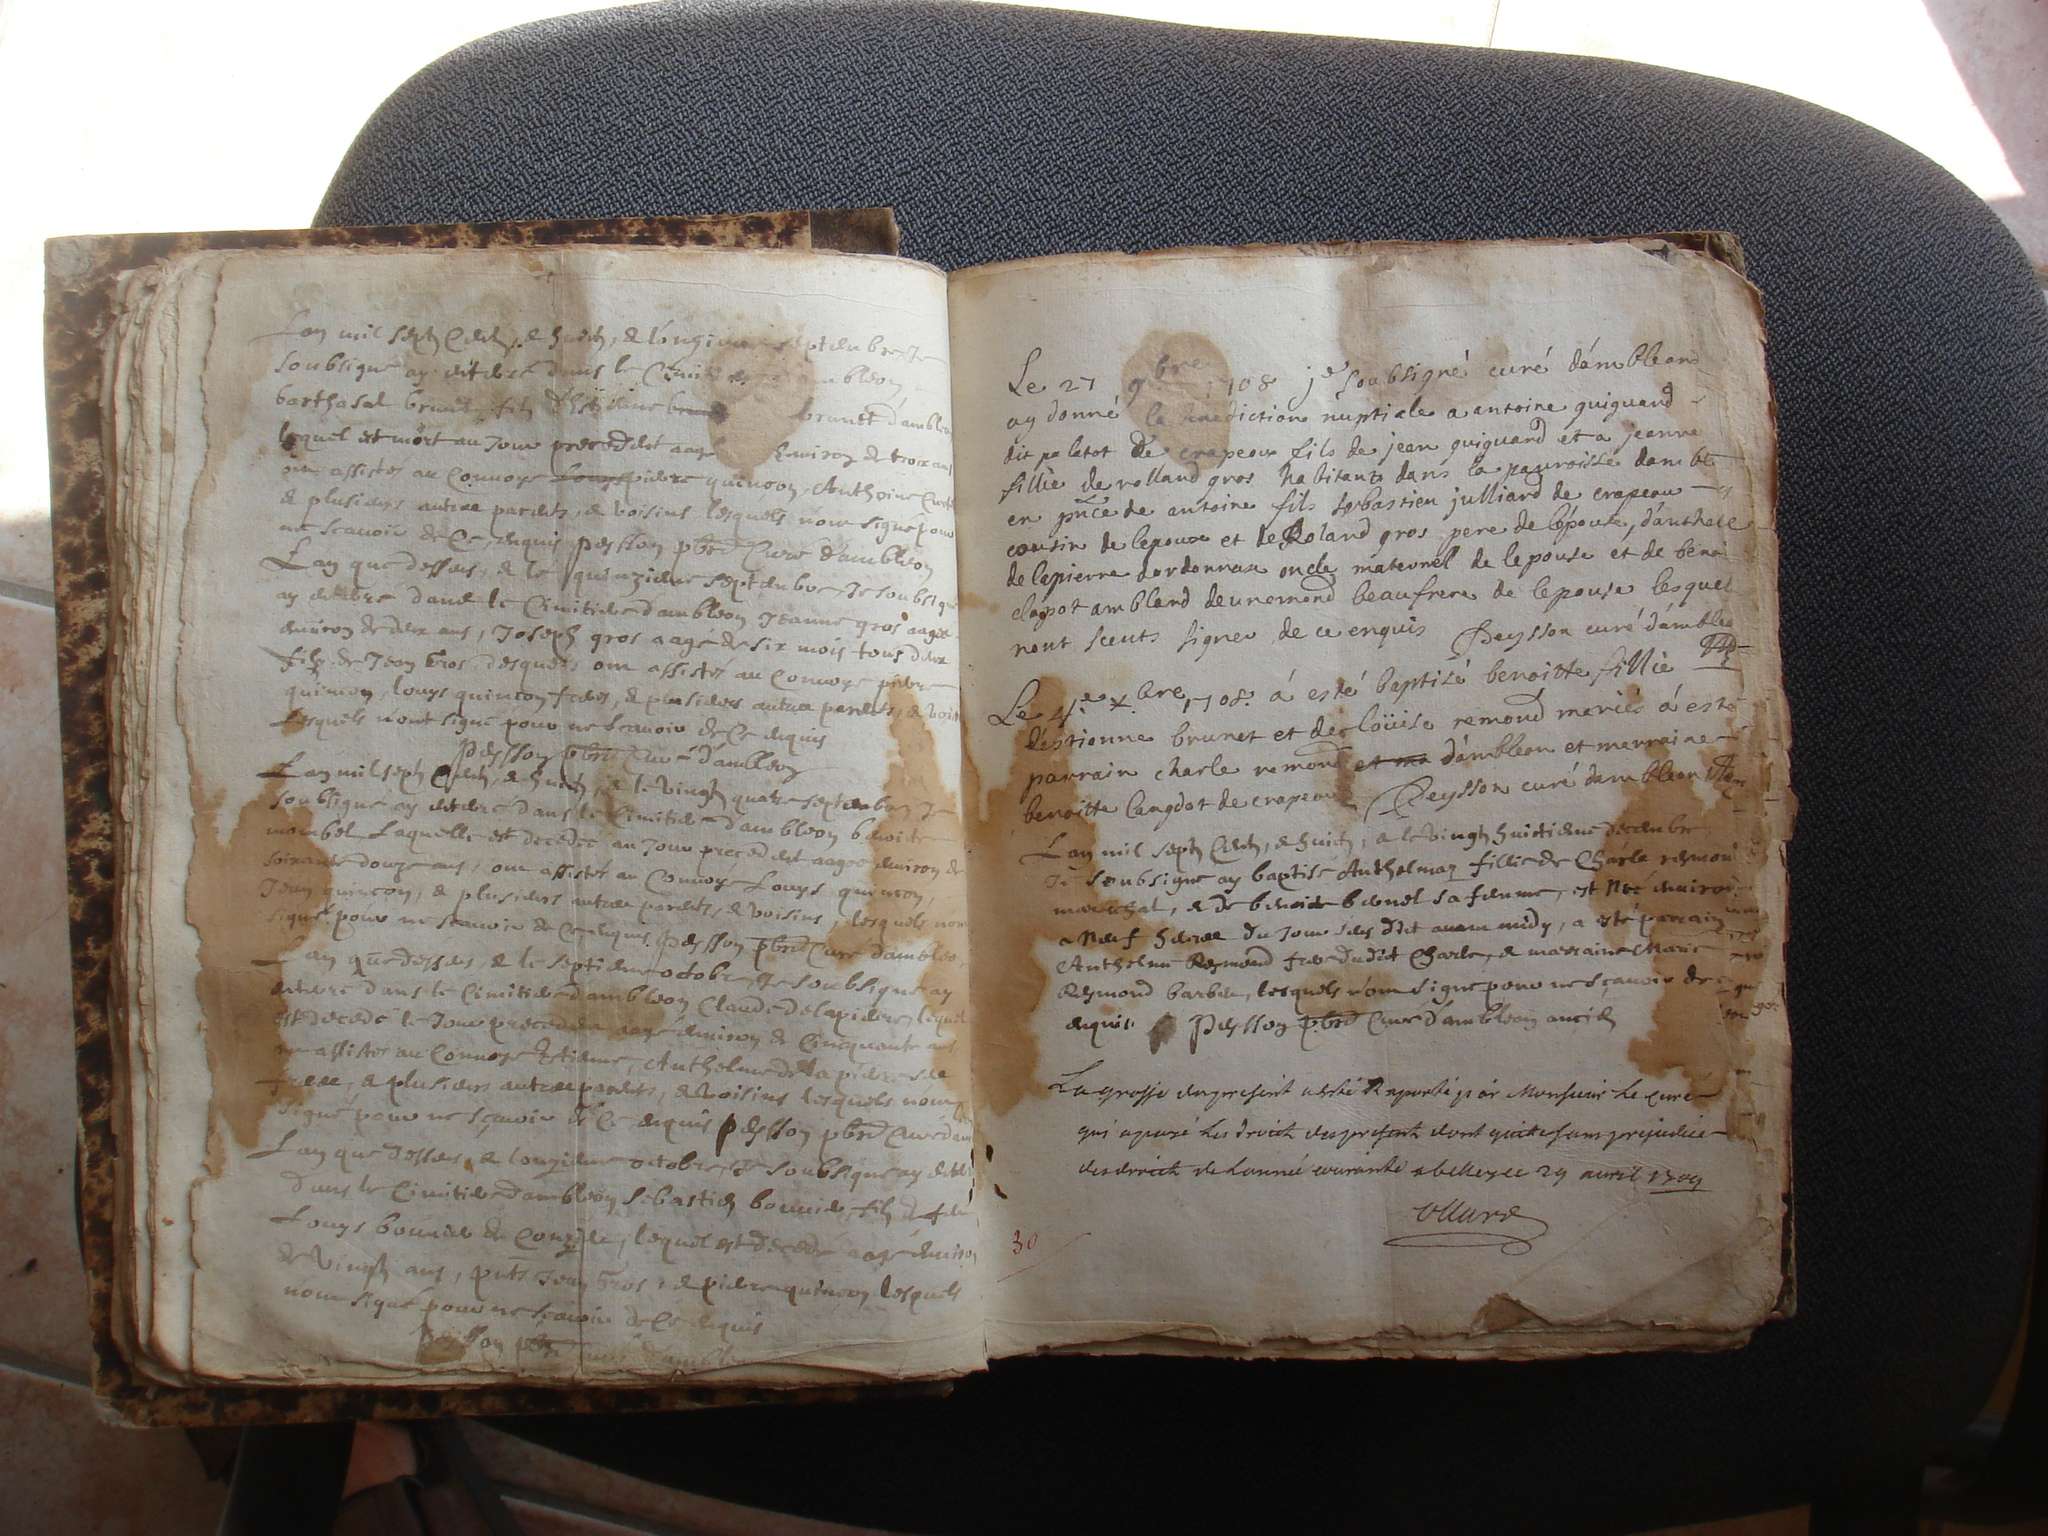 Lan mil sept cents, & huict, & l'onzieme septembre Je
soubsigne ay enterré dans le Cimitiere d'ambleon
barthasal brunet fils d'Estienne brunet d'ambleon
lequel est mort au Jour precedent aagé Environ de trois ans
ont assistés au Convoye pierre quincon, Anthoine
& plusieurs autres parents, & voisins lesquels n'ont signé pour
ne scavoir de Ce enquis peysson pbre Curé d'ambleon
L'an que dessus, & le quinzieme septembre Je soubsigné
ay enterré dans le Cimitiere d'ambleon Jeanne gros aagée
environ de deux ans, Joseph gros aagé de six mois tous deux
fils de Jean Gros desquels ont assistés au Convoye pierre
quincon, louys quincon freres, & plusieurs autres parents, & voisins
lesquels n'ont signé pour ne scavoir de Ce enquis
peysson pbre Curé d'ambleon
L'an mil sept Cents, & huict, & le vingt quatre septembre Je
soubsigné ay enterré dans le Cimitiere d'ambleon benoite
mombel Laquelle est decedée au Jour precedent aagée environ de
soixante douze ans, ont assistés au Convoye Louys quincon,
Jean quincon, & plusieurs autres parents, & voisins, lesquels n'ont
signé pour ne scavoir de Ce enquis peysson pbre Curé d'ambleon
L'an que dessus, & le septieme octobre, Je soubsigné ay
enterré dans le Cimitiere d'ambleon Claude delapierre, lequel
est decedé le Jour precedent aagé environ de Cinquante ans
ont assistés au Convoye Estienne, Anthelme delapierre
freres, & plusieurs autres parents, & voisins lesquels n'ont
signé pour ne scavoir de Ce enquis peysson pbre Curé d'am
L'an que dessus, & l'onzieme octobre, Je soubsigné ay enterré
dans le Cimitiere d'ambleon sebastien bouvier, fils de feu
Louys bouvier de lequel est decedé aagé environ
de vingt ans, pnts Jean Gros, & pierre quincon lesquels
n'ont signé pour ne scavoir de Ce enquis
peysson pbre curé d'ambl
Le 27 9bre 1708 je soubsigné curé d'ambleon
ay donné la benediction nuptiale a antoine guiguard
dit palatot de crapeou fils de jean guiguard et a jeanne
fillie de rolland gros habitants dans la parroisse damble
en pnce de antoine fils sebastien julliard de crapeau
cousin de lepoux et de Roland gros pere de lépouse, d'anthelme
de lapierre dordonnax oncle maternel de lepouse et de benoi
clapot amblard deunemond beaufrere de lepouse lesquel
nont sceuts signer de ce enquis Peysson curé d'amble
Le 4e xbre 1708 á esté baptisé benoitte fillie
d'estienne brunet et de loüise remond mariés á esté
parrain charle remond et ma d'ambleon et marraine
benoitte langdot de crapeou Peysson curé dambleon
L'an mil sept Cents, & huict, & le vingt huictieme decembre
Je soubsigné ay baptisé Anthelmaz fillie de Charle reymond
mareschal, & de benoite brunet sa femme, est née environ
a Neuf heures du Jour susdit avant midy, a esté parrain
Anthelme Reymond frere dudit Charle, & marraine Marie
Reymond barbier, lesquels n'ont signé pour ne sçavoir de
enquis Peysson pbre Curé d'ambleon ancien
La grosse du present a esté Raporté par Monsieur Le curé
qui a payé les droict du present dont quitte sans prejudice
des droict de L'année courante a belley ce 29 avril 1709
30